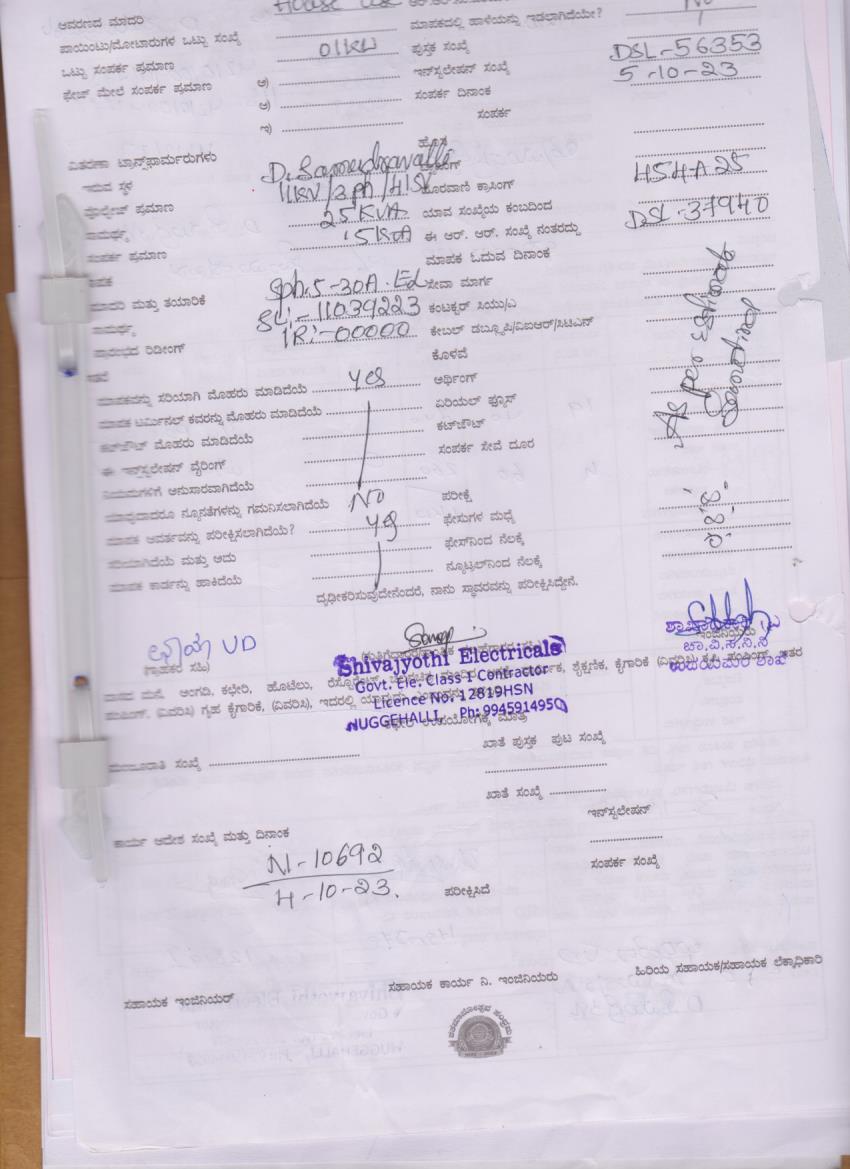 ಆವರಣದ ಮಾದರಿ House
ಪಾಯಿಂಟು/ಮೋಟಾರುಗಳ ಒಟ್ಟು ಸಂಖ್ಯೆ ಮಾಪಕದಲ್ಲಿ ಹಾಳೆಯನ್ನು ಇಡಲಾಗಿದೆಯೇ? No
ಒಟ್ಟು ಸಂಪರ್ಕ ಪ್ರಮಾಣ 01KW ಪುಸ್ತಕ ಸಂಖ್ಯೆ
ಫೇಜ್ ಮೇಲೆ ಸಂಪರ್ಕ ಪ್ರಮಾಣ ಅ) ಇನ್‌ಸ್ಟಲೇಷನ್ ಸಂಖ್ಯೆ DSL-56353
ಆ) ಸಂಪರ್ಕ ದಿನಾಂಕ 5-10-23
ಇ) ಸಂಪರ್ಕ
ವಿತರಣಾ ಟ್ರಾನ್ಸ್‌ಫಾರ್ಮರುಗಳು
ಇರುವ ಸ್ಥಳ D. Samudravalli
ವೋಲ್ಟೇಜ್ ಪ್ರಮಾಣ 11KV/3ph/415V ಹೊರವಾಣಿ ಕ್ರಾಸಿಂಗ್
ಸಾಮರ್ಥ್ಯ 25KVA ಯಾವ ಸಂಖ್ಯೆಯ ಕಂಬದಿಂದ 454A25
ಸಂಪರ್ಕ ಪ್ರಮಾಣ 15KVA ಈ ಆರ್. ಆರ್. ಸಂಖ್ಯೆ ನಂತರದ್ದು DSL-37940
ಮಾಪಕ ಮಾಪಕ ಓದುವ ದಿನಾಂಕ
ಮಾದರಿ ಮತ್ತು ತಯಾರಿಕೆ Sph.5-30A. ಸೇವಾ ಮಾರ್ಗ
ಸಾಮರ್ಥ್ಯ SL:-11039223 ಕಂಟಕ್ಟರ್ ಸಿಯು/ಎ
ಪ್ರಾರಂಭದ ರಿಡೀಂಗ್ IR:-00000 ಕೇಬಲ್ ಡಬ್ಲ್ಯೂಪಿ/ವಿಐಆರ್/ಸಿಟಿಎನ್
ಕೊಳವೆ
ಮಾಪಕವನ್ನು ಸರಿಯಾಗಿ ಮೊಹರು ಮಾಡಿದೆಯೆ yes ಅರ್ಥಿಂಗ್
ಮಾಪಕ ಟರ್ಮಿನಲ್ ಕವರನ್ನು ಮೊಹರು ಮಾಡಿದೆಯೆ ಏರಿಯಲ್ ಫ್ಯೂಸ್
ಕಟ್‌ಔಟ್ ಮೊಹರು ಮಾಡಿದೆಯೆ ಕಟ್‌ಔಟ್
ಈ ಇನ್‌ಸ್ಟಲೇಷನ್ ವೈರಿಂಗ್ ಸಂಪರ್ಕ ಸೇವೆ ದೂರ
ನಿಯಮಗಳಿಗೆ ಅನುಸಾರವಾಗಿದೆಯೆ
ಯಾವುದಾದರೂ ನ್ಯೂನತೆಗಳನ್ನು ಗಮನಿಸಲಾಗಿದೆಯೆ No ಪರೀಕ್ಷೆ
ಮಾಪಕ ಆವರ್ತವನ್ನು ಪರೀಕ್ಷಿಸಲಾಗಿದೆಯೆ? yes ಫೇಸುಗಳ ಮಧ್ಯೆ
ಸರಿಯಾಗಿದೆಯೆ ಮತ್ತು ಅದು ಫೇಸ್‌ನಿಂದ ನೆಲಕ್ಕೆ
ಮಾಪಕ ಕಾರ್ಡನ್ನು ಹಾಕಿದೆಯೆ ನ್ಯೂಟ್ರಲ್‌ನಿಂದ ನೆಲಕ್ಕೆ
ದೃಢೀಕರಿಸುವುದೇನೆಂದರೆ, ನಾನು ಸ್ಥಾವರವನ್ನು ಪರೀಕ್ಷಿಸಿದ್ದೇನೆ.
UD
(ಗ್ರಾಹಕರ ಸಹಿ) ಇಂಜಿನಿಯರು
ಚಾ.ವಿ.ಸ.ನಿ.ನಿ
Shivajyothi Electricals
Govt. Ele. Class 1 Contractor
Licence No. 12819HSN
NUGGEHALLI, Ph: 9945914950
ವಾಸದ ಮನೆ. ಅಂಗಡಿ, ಕಛೇರಿ, ಹೋಟೆಲು, ಶೈಕ್ಷಣಿಕ, ಕೈಗಾರಿಕೆ (ವಿವರಿಸಿ) ಕೃಷಿ ಪಂಪಿಂಗ್, ಇತರ
ಪಂಪಿಂಗ್. (ವಿವರಿಸಿ) ಗೃಹ ಕೈಗಾರಿಕೆ, (ವಿವರಿಸಿ), ಇದರಲ್ಲಿ
ಮಂಜೂರಾತಿ ಸಂಖ್ಯೆ ಖಾತೆ ಪುಸ್ತಕ ಪುಟ ಸಂಖ್ಯೆ
ಖಾತೆ ಸಂಖ್ಯೆ
ಇನ್‌ಸ್ಟಲೇಷನ್
ಕಾರ್ಯ ಆದೇಶ ಸಂಖ್ಯೆ ಮತ್ತು ದಿನಾಂಕ
N-10692 ಸಂಪರ್ಕ ಸಂಖ್ಯೆ
4-10-23. ಪರೀಕ್ಷಿಸಿದೆ
ಸಹಾಯಕ ಇಂಜಿನಿಯರ್ ಸಹಾಯಕ ಕಾರ್ಯ ನಿ. ಇಂಜಿನಿಯರು ಹಿರಿಯ ಸಹಾಯಕ/ಸಹಾಯಕ ಲೆಕ್ಕಾಧಿಕಾರಿ